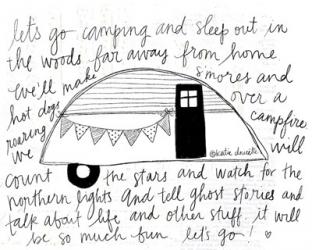 let's go camping and sleep out in
the woods far away from home
we'll make s'mores and
hot dogs over a
roaring campfire
we will
@katie daisy
count the stars and watch for the
northern lights And tell ghost stories and
talk about life and other stuff it will
be so much fun let's go!